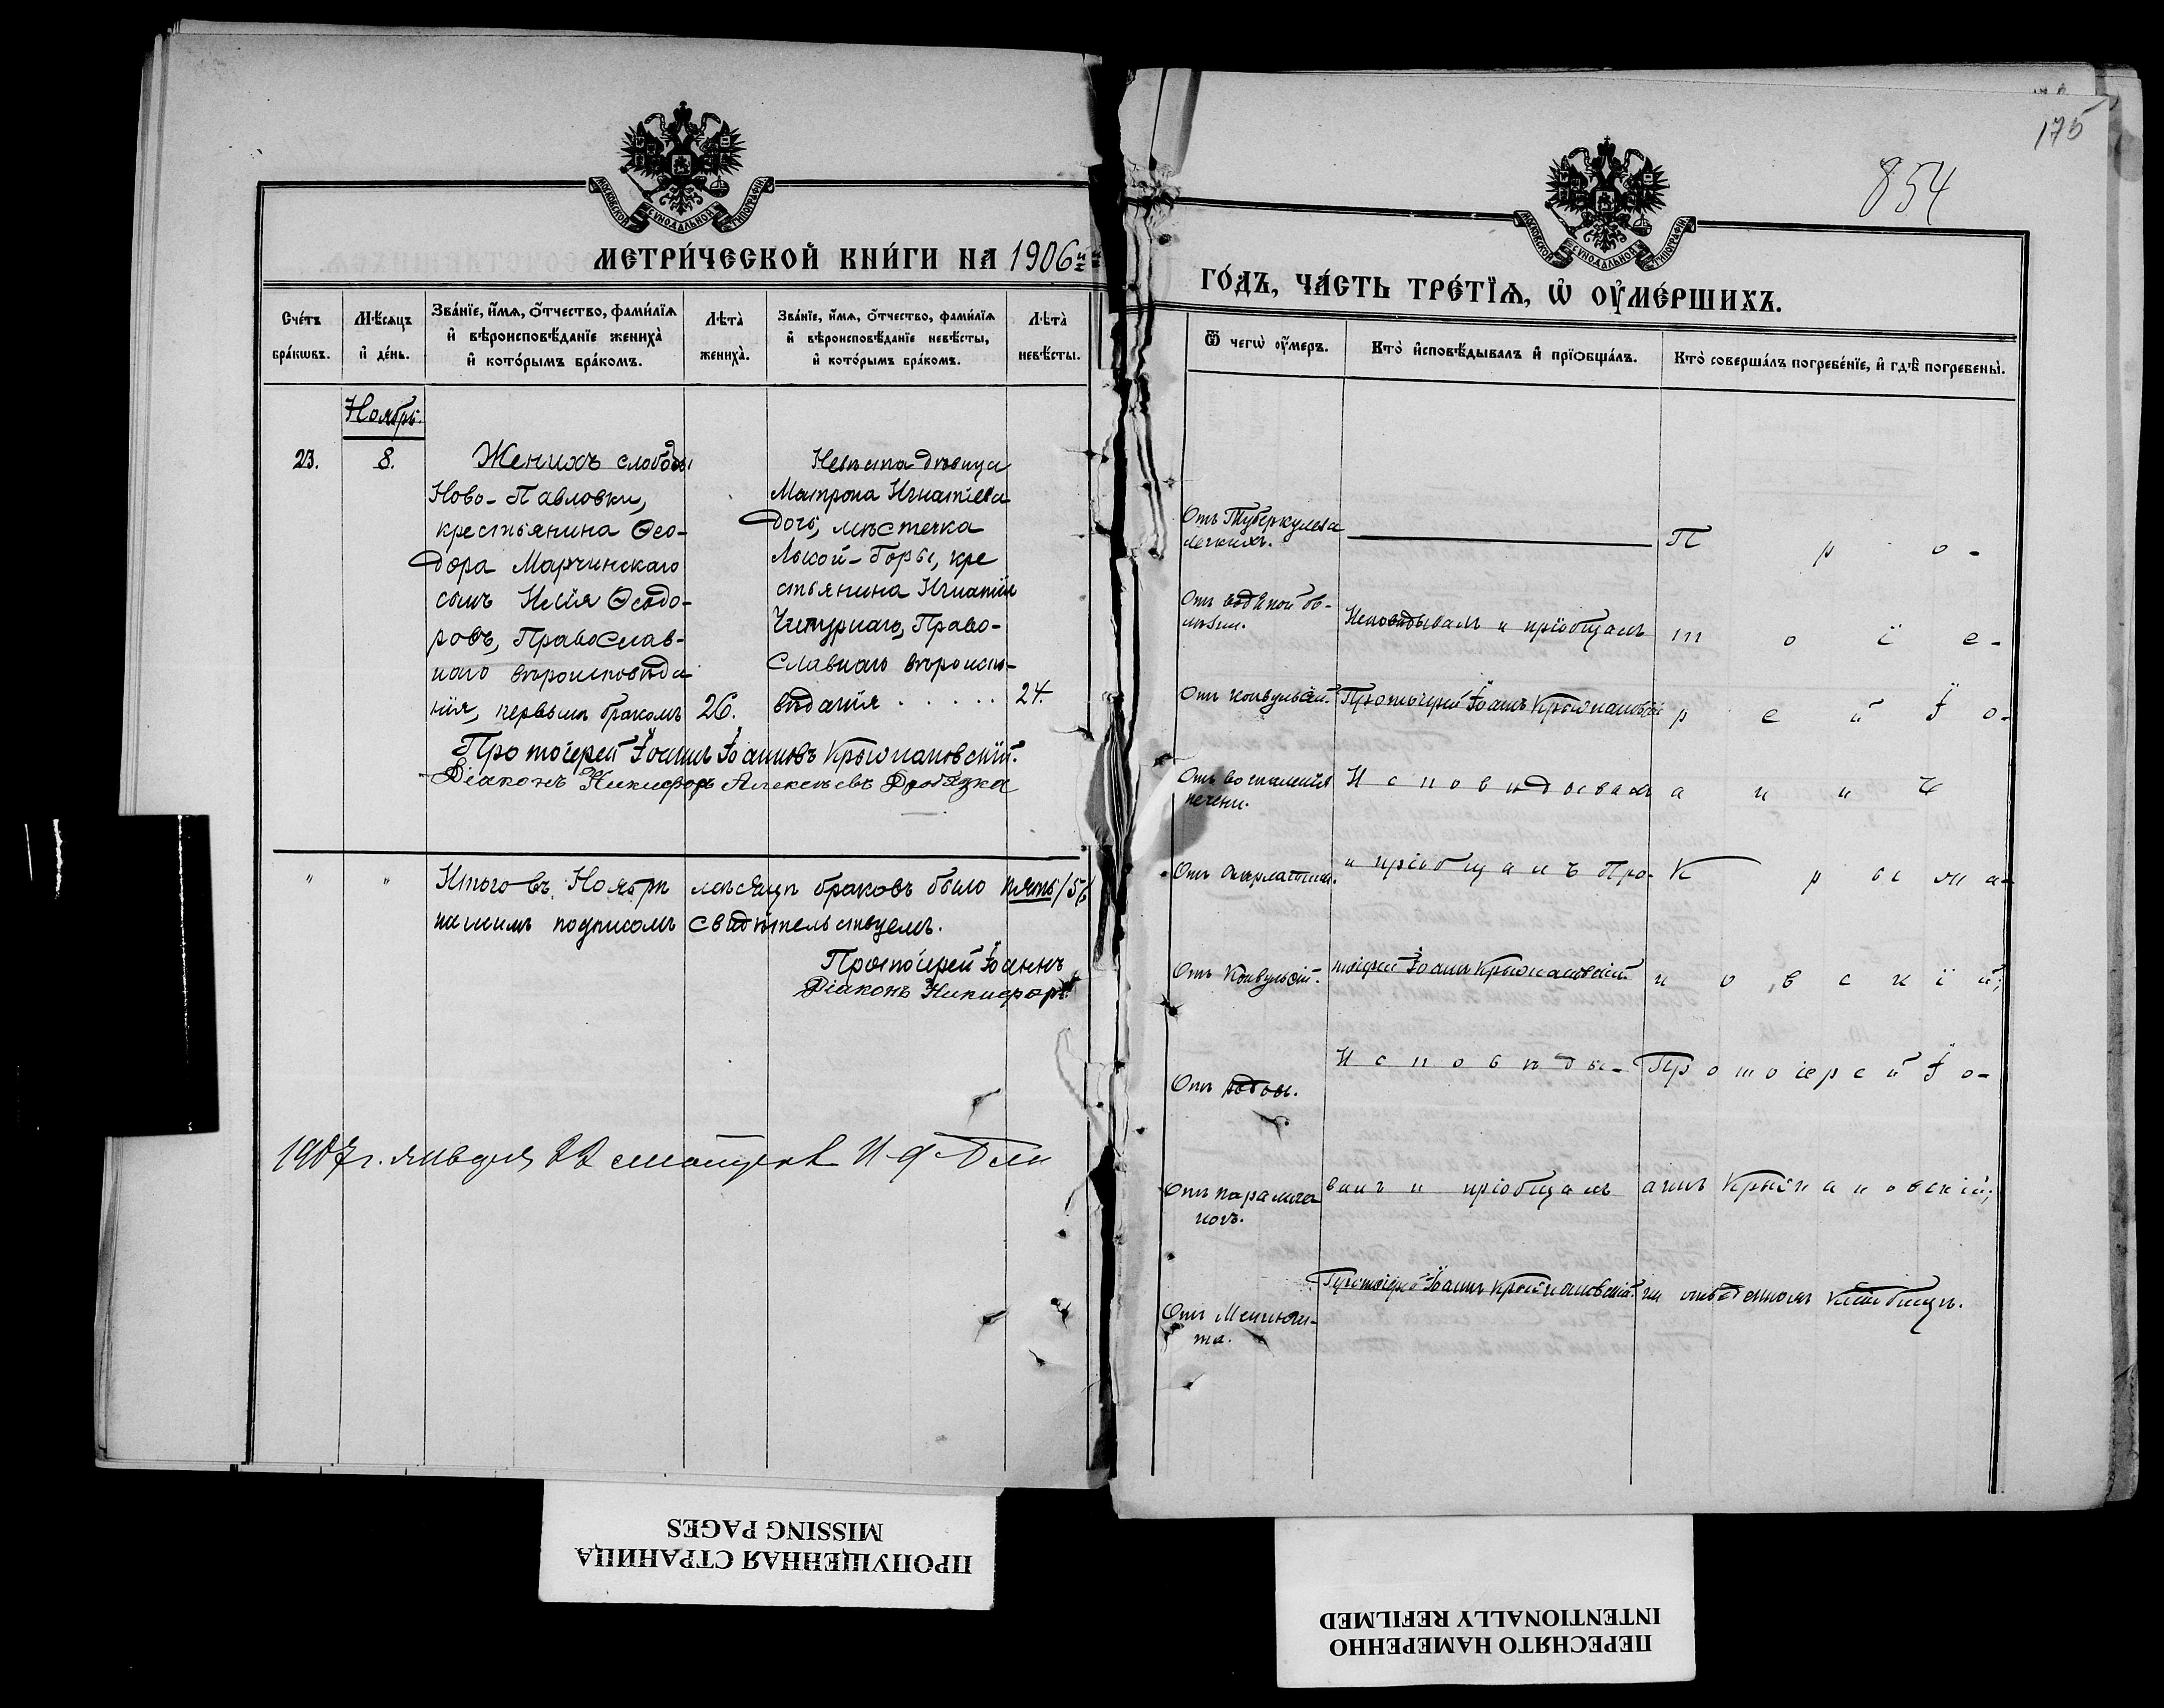 МОСКОВСКОЙ СУНОДАЛЬНОЙ ТИПОГРАФІИ
МЕТРИ́ЧЕСКОЙ КНИ́ГИ НА 1906й
Сче́тъ бра́кѡвъ.
Мѣ́сяцъ и҆ де́нь.
Зва́нїе, и҆́мѧ, ѻ҆́тчество, фами́лїѧ и҆ вѣроисповѣ́данїе жениха̀ и҆ кото́рымъ бра́комъ.
Лѣта̀ жениха̀.
Зва́нїе, и҆́мѧ, ѻ҆́тчество, фами́лїѧ и҆ вѣроисповѣ́данїе невѣ́сты, и҆ кото́рымъ бра́комъ.
Лѣта̀ невѣ́сты.
Ноябрь.
23.
8.
Женихъ слободы
Ново-Павловки,
крестьянина Ѳео-
дора Марчинскаго
сынъ Илія Ѳеодо-
ровъ, Православ-
наго вѣроисповѣда
нія, первымъ бракомъ
26.
Невѣста дѣвица
Матрона Игнатіева
дочь, мѣстечка
Лысой-Горы, кре
стьянина Игнатія
Читурнаго, Право-
славнаго вѣроиспо-
вѣданія . . . . . .
24.
Протоіерей Іоаннъ Іоанновъ Крыжановскій.
Діаконъ Никифоръ Алексѣевъ Дробязка
"
"
Итого въ Ноябрѣ мѣсяцѣ браковъ было пять /5/
нашимъ подписомъ свидѣтельствуемъ.
Протоіерей Іоаннъ
Діаконъ Никифоръ
1907 г. января 22
175
854
МОСКОВСКОЙ СУНОДАЛЬНОЙ ТИПОГРАФІИ
ГО́ДЪ, ЧА́СТЬ ТРЕ́ТЇѦ, Ѡ҆ ОУ҆МЕ́РШИХЪ.
Ѿ чегѡ̀ ѹ҆́меръ.
Кто̀ и҆сповѣ́дывалъ и҆ прїѻбща́лъ.
Кто̀ соверша́лъ погребе́нїе, и҆ гдѣ̀ погребены̀.
Отъ Туберкулеза
легкихъ.
П р о-
Отъ водяной бо-
лѣзни.
Исповѣдывалъ и пріобщалъ
т о і е-
Отъ конвульсій.
Протоіерей Іоаннъ Крыжановскій
р е й І о-
Отъ воспаленія
печени.
И с п о в ѣ д ы в а л ъ
а н н ъ
и п р і о б щ а л ъ Про-
К р ы ж а-
Отъ Конвульсій.
тоіерей Іоаннъ Крыжановскій
н о в с к і й;
Отъ родовъ.
И с п о в ѣ д ы-
П р о т о і е р е й І о-
валъ и пріобщалъ
аннъ Крыжановскій;
Отъ Менинги-
та.
Протоіерей Іоаннъ Крыжановскій.
кладбищѣ.
ПРОПУЩЕННАЯ СТРАНИЦА
MISSING PAGES
ПЕРЕСНЯТО НАМЕРЕННО
INTENTIONALLY REFILMED